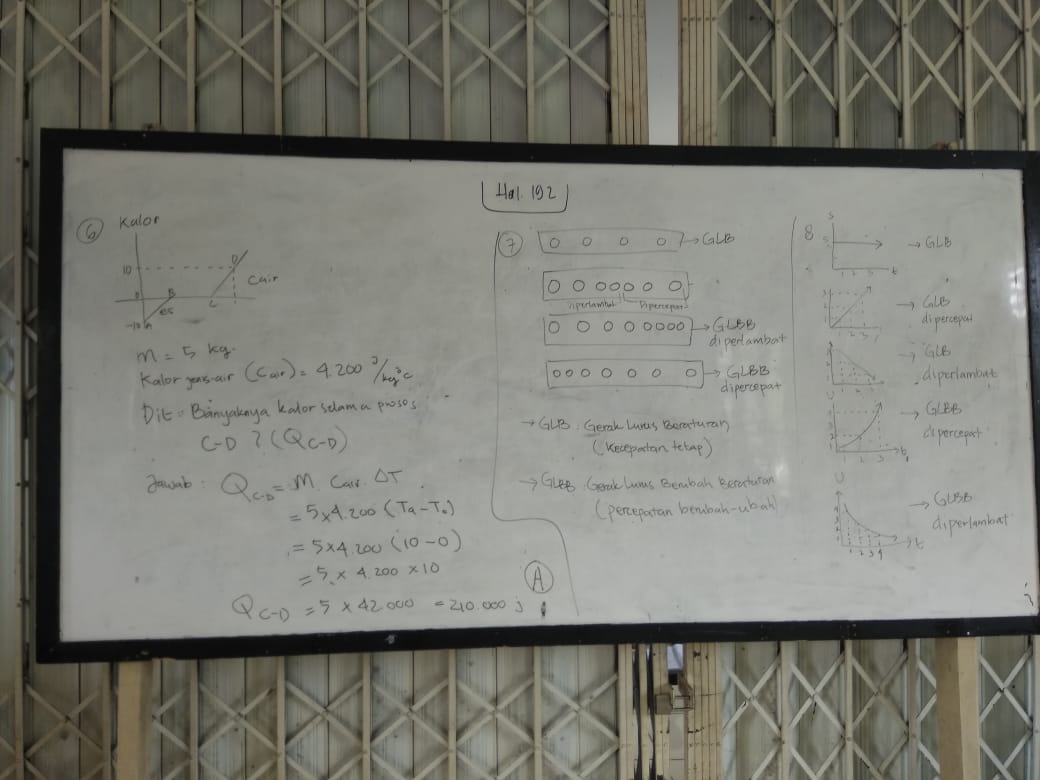 Hal. 192
6
Kalor
10
D
Cair
0
B
C
es
-10
A
m = 5 kg.
Kalor jenis air (Cair) = 4.200 J/kg°C
Dit : Banyaknya kalor selama proses
C-D ? (QC-D)
Jawab : QC-D = M Cair ΔT
= 5x4.200 (Ta-To)
= 5x4.200 (10-0)
= 5 x 4.200 x 10
QC-D = 5 x 42000 = 210.000 j
A
7
→ GLB
Diperlambat Dipercepat
→ GLBB
diperlambat
→ GLBB
dipercepat
→ GLB : Gerak Lurus Beraturan
(Kecepatan tetap)
→ GLBB : Gerak Lurus Berubah Beraturan
(percepatan berubah-ubah)
8
S
→ GLB
1 2 3 t
→ GLB
dipercepat
1 2 3
→ GLB
diperlambat
U
→ GLBB
dipercepat
1 2 3 t
U
→ GLBB
diperlambat
1 2 3 4 t